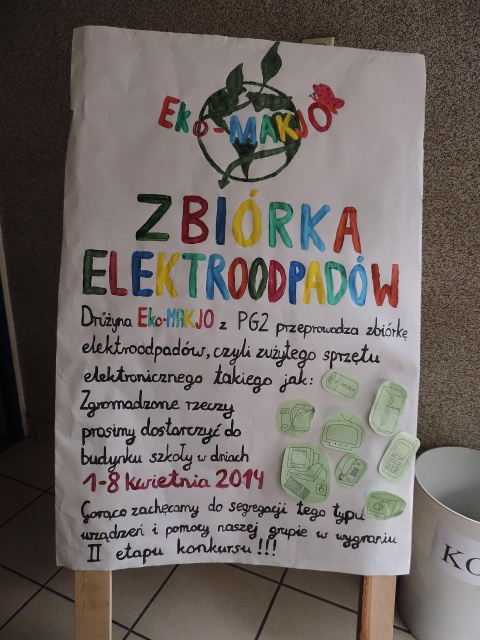 Eko-MAKJO
ZBIÓRKA
ELEKTROODPADÓW
Drużyna Eko-MAKJO z PG2 przeprowadza zbiórkę
elektroodpadów, czyli zużytego sprzętu
elektronicznego takiego jak:
Zgromadzone rzeczy
prosimy dostarczyć do
budynku szkoły w dniach
1-8 kwietnia 2014
Gorąco zachęcamy do segregacji tego typu
urządzeń i pomocy naszej grupie w wygraniu
II etapu konkursu!!!
KO